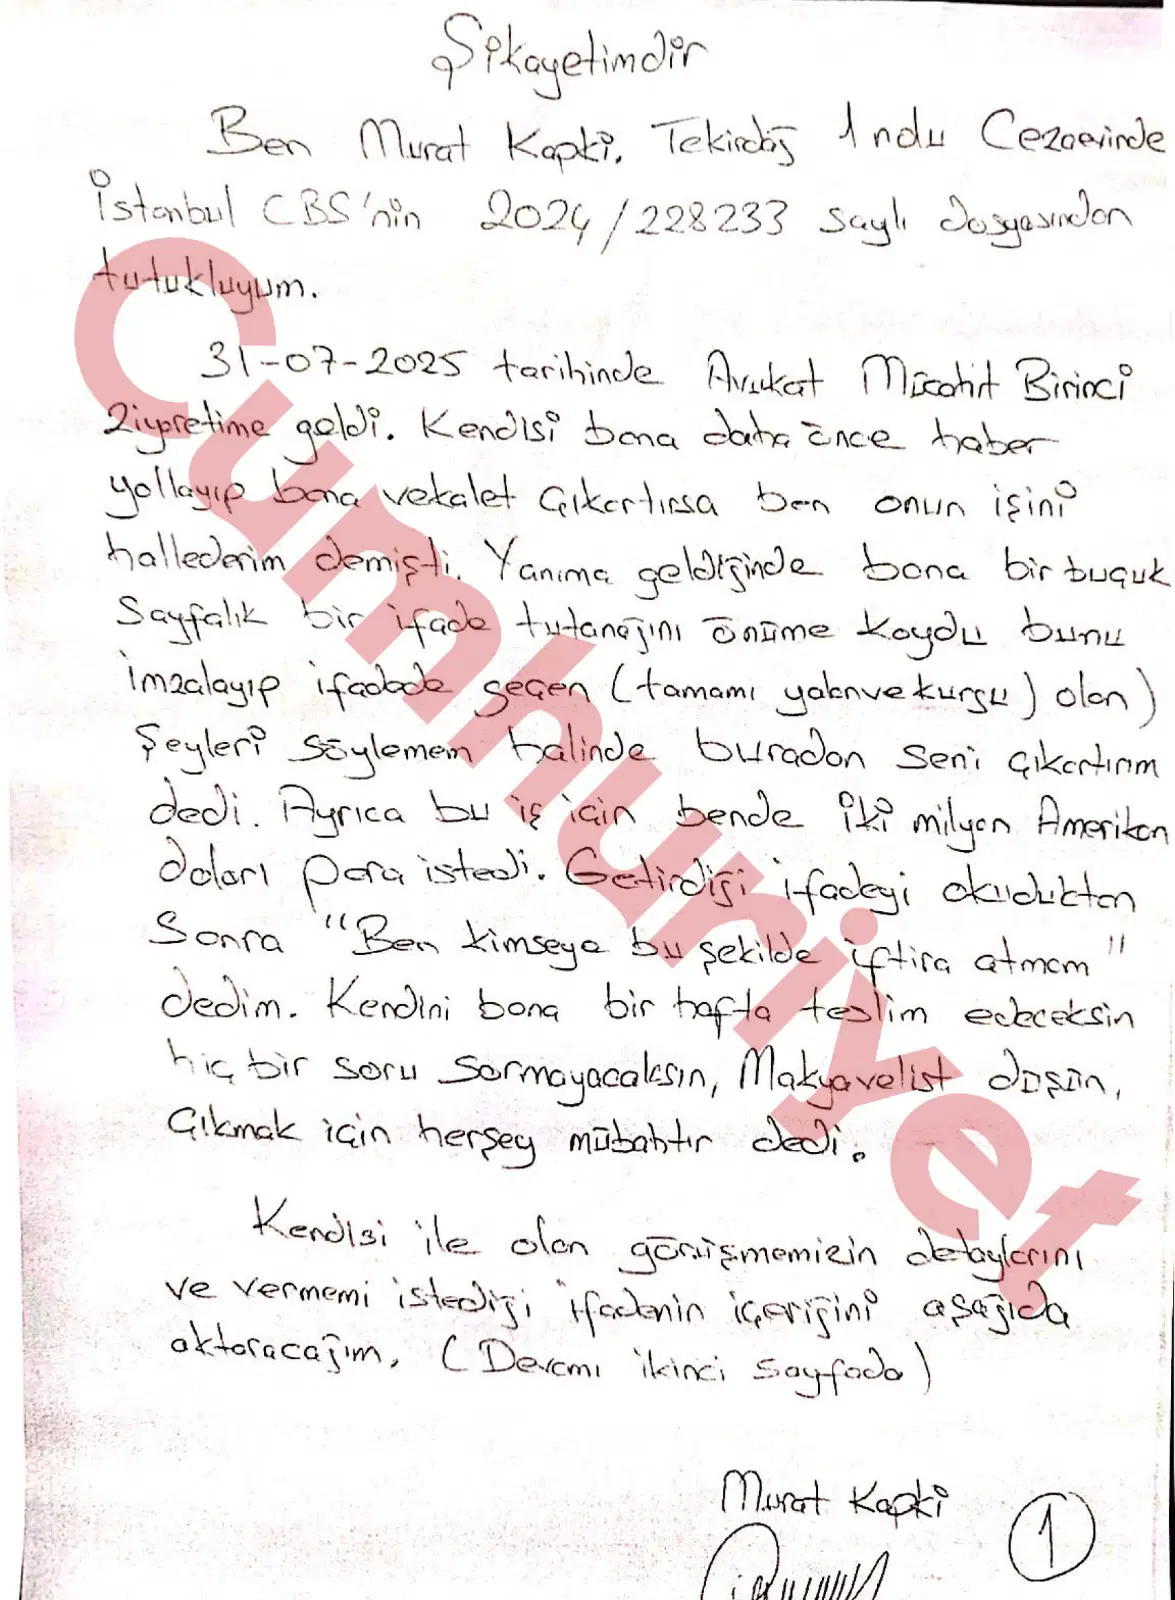 Şikayetimdir
Ben Murat Kapki, Tekirdağ 1 nolu Cezaevinde
İstanbul CBS'nin 2024/228233 saylı dosyasından
tutukluyum.
31-07-2025 tarihinde Avukat Mücahit Birinci
ziyaretime geldi. Kendisi bana daha önce haber
yollayıp bana vekalet çıkartırsa ben onun işini
hallederim demişti. Yanıma geldiğinde bana bir buçuk
sayfalık bir ifade tutanağını önüme koydu bunu
imzalayıp ifadede geçen (tamamı yalan ve kurgu) olan)
şeyleri söylemem halinde buradan seni çıkartırım
dedi. Ayrıca bu iş için bende iki milyon Amerikan
doları para istedi. Getirdiği ifadeyi okuduktan
Sonra "Ben kimseye bu şekilde iftira atmam"
dedim. Kendini bana bir hafta teslim edeceksin
hiç bir soru sormayacaksın, Makyavelist düşün,
Çıkmak için herşey mübahtır dedi.
Kendisi ile olan görüşmemizin detaylarını
ve vermemi istediği ifadenin içeriğini aşağıda
aktaracağım. (Devamı ikinci sayfada)
Murat Kapki
1
Cumhuriyet